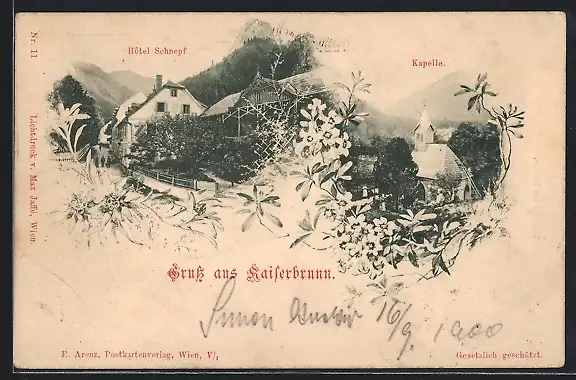 Nr. 11
Lichtdruck v. Max Jaffé, Wien.
Hôtel Schnepf
Kapelle.
Gruß aus Kaiserbrunn.
16/9 1900
E. Arenz, Postkartenverlag, Wien, V/1
Gesetzlich geschützt.